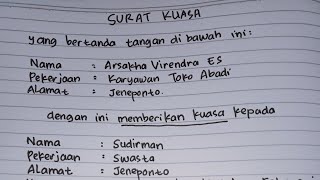 SURAT KUASA
yang bertanda tangan di bawah ini:
Nama : Arsakha Virendra ES
Pekerjaan : Karyawan Toko Abadi
Alamat : Jeneponto.
dengan ini memberikan kuasa kepada
Nama : Sudirman
Pekerjaan : Swasta
Alamat : Jeneponto